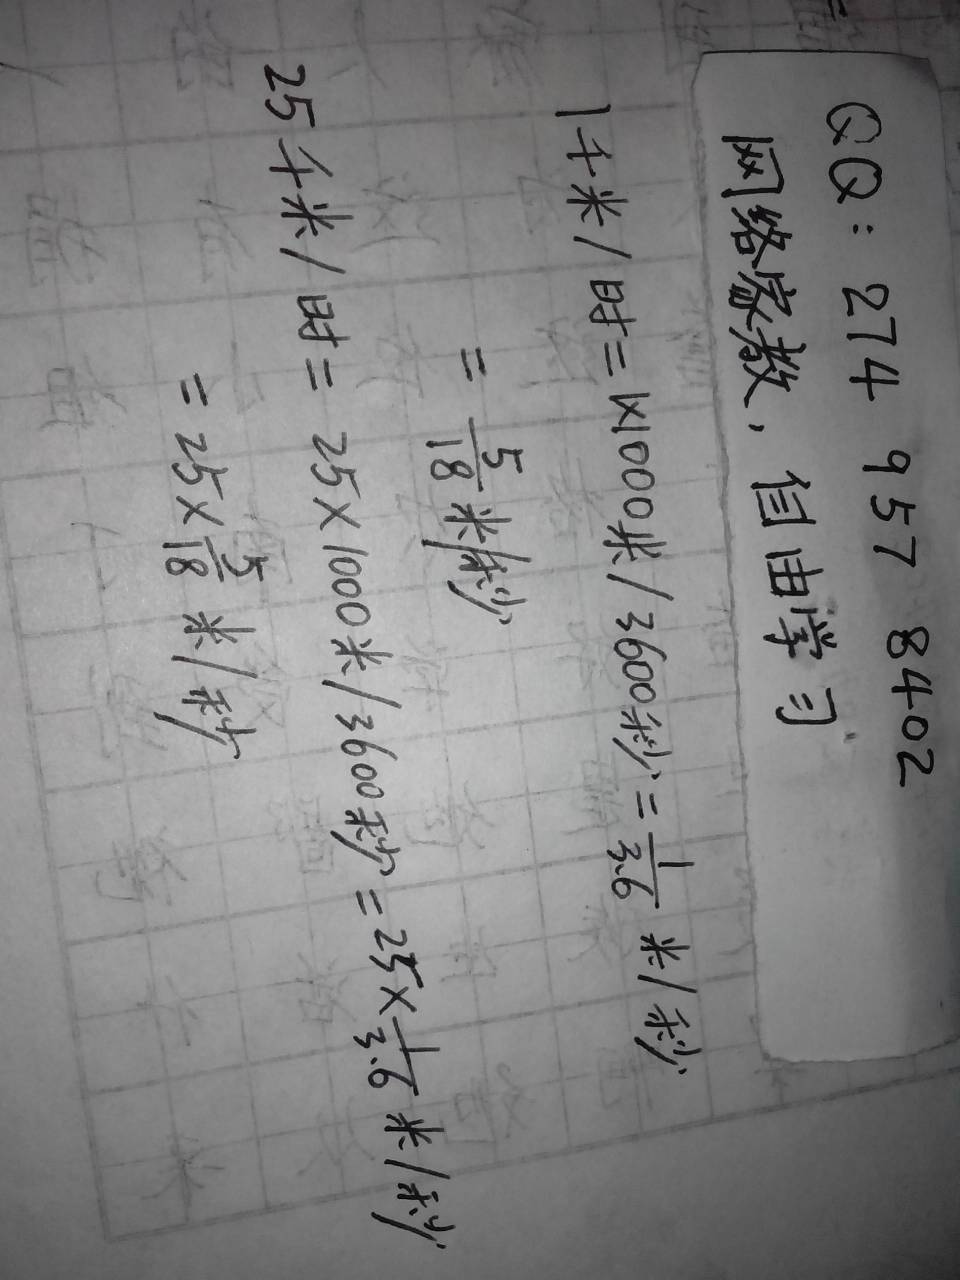 QQ: 274 957 8402
网络家教，自由学习
1千米/时=1×1000米/3600秒=1/3.6 米/秒
=5/18米/秒
25千米/时=25×1000米/3600秒=25×1/3.6米/秒
=25×5/18 米/秒